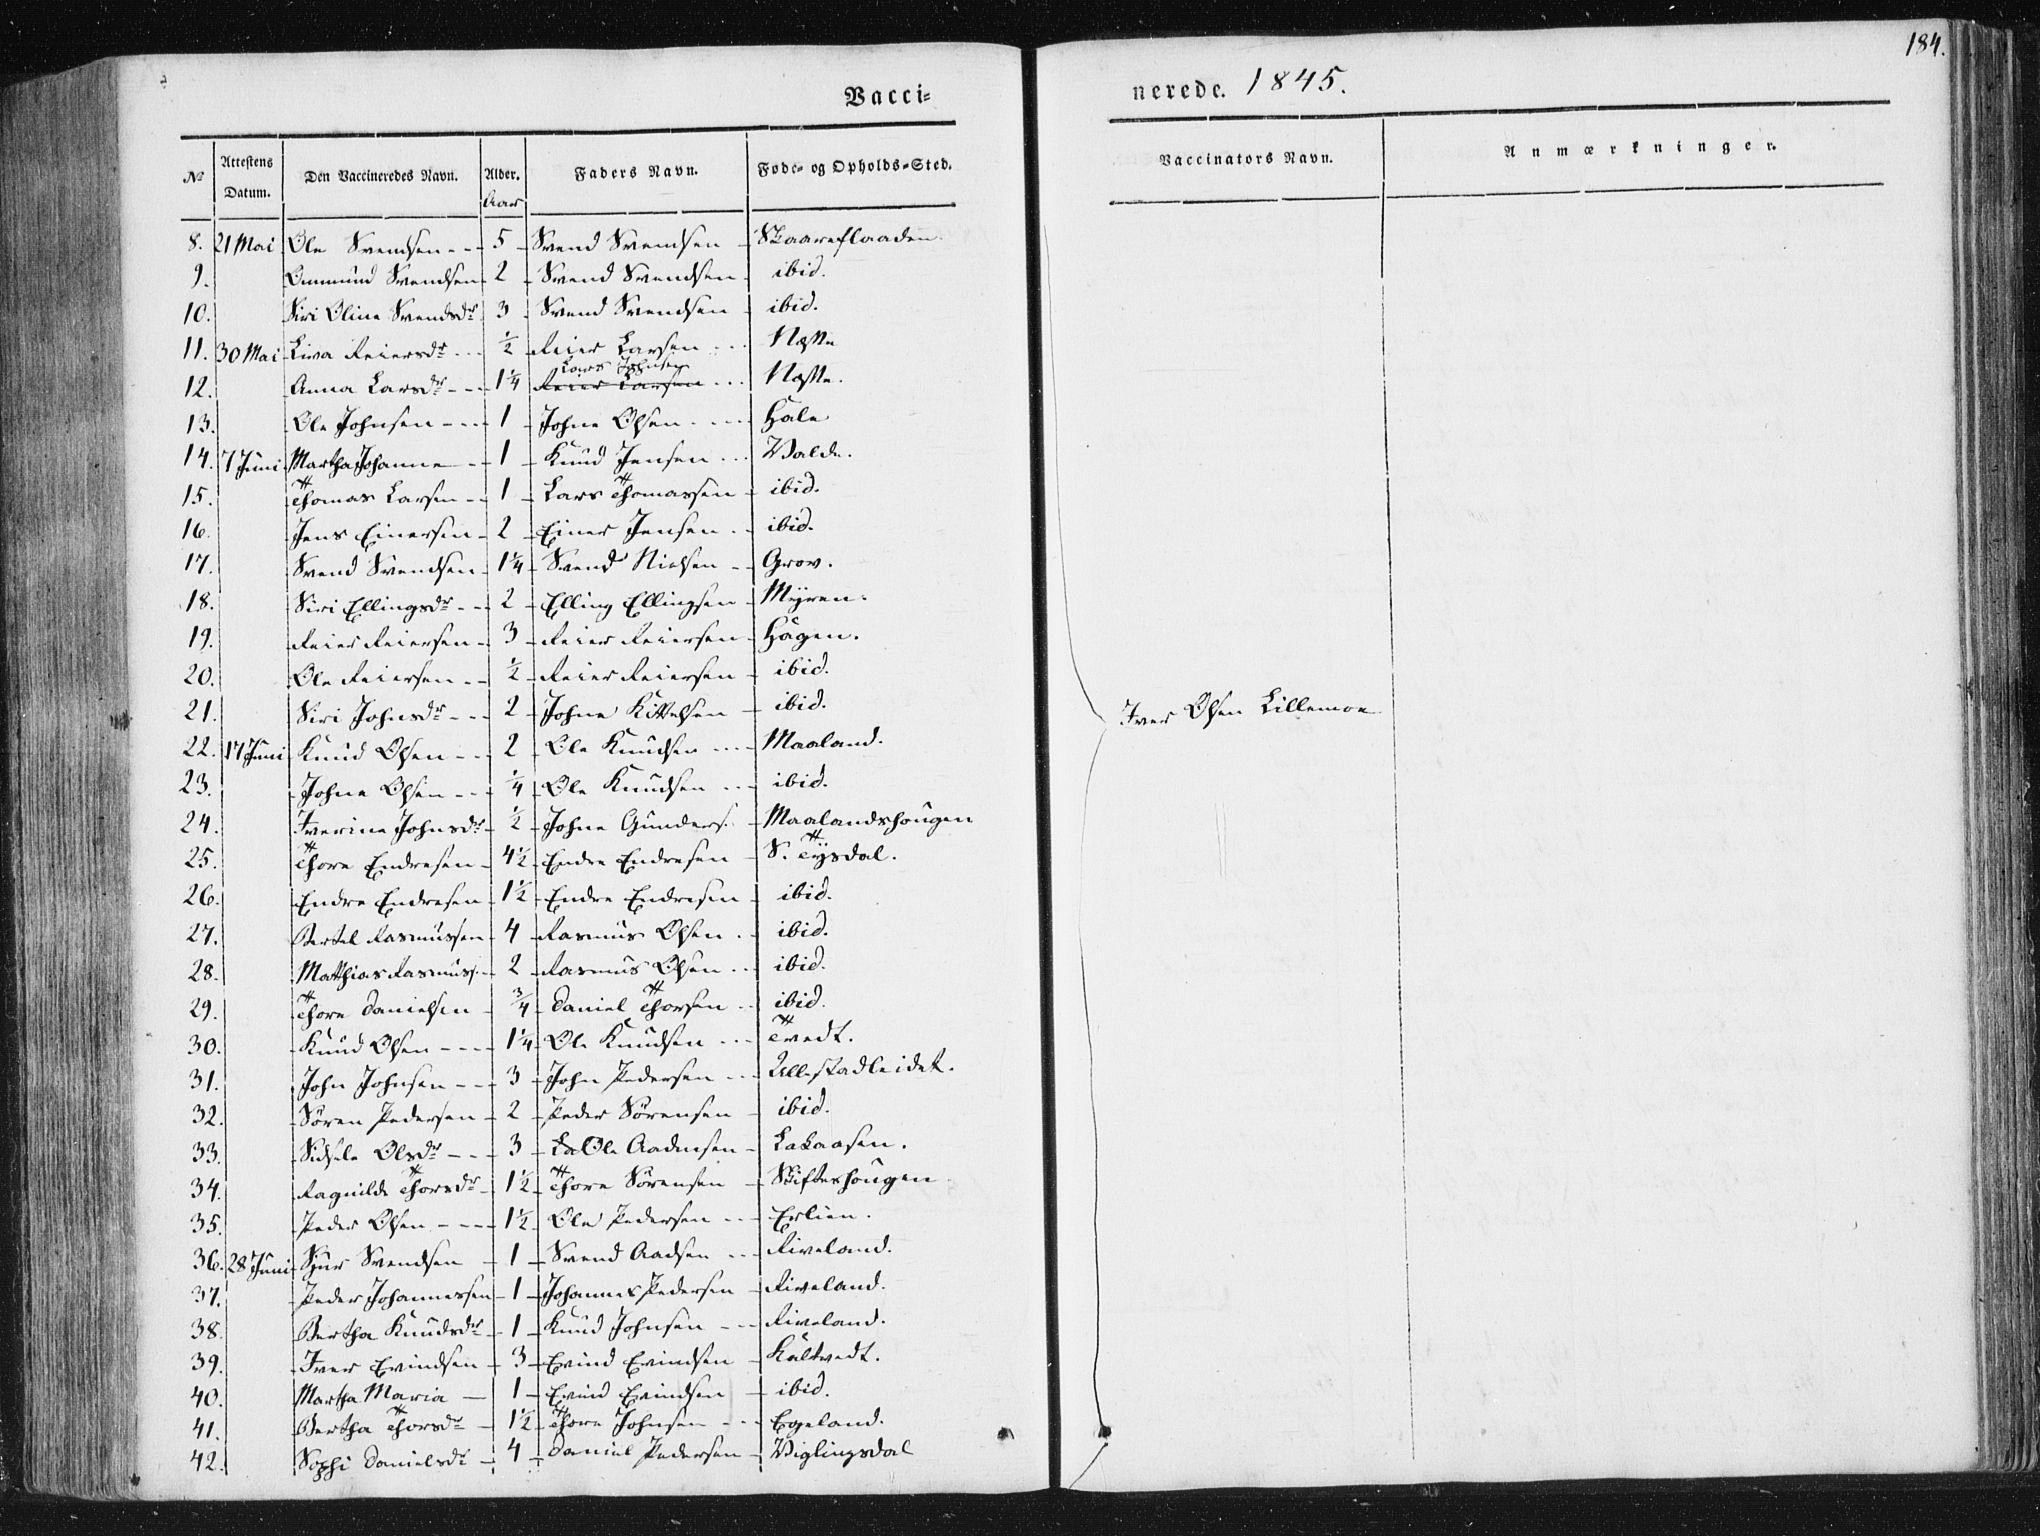 184.
Vacci=
nerede. 1845.
№ Attestens Datum. Den Vaccineredes Navn. Alder. Faders Navn. Føde- og Opholds-Sted. Vaccinators Navn. Anmærkninger.
Aar
8. 21 Mai Ole Svendsen 5 Svend Svendsen Skaareflaaden.
9. Ommund Svendsen 2 Svend Svendsen ibid.
10. Siri Oline Svendsdr 3 Svend Svendsen ibid.
11. 30 Mai Liva Reiersdr ½ Reier Larsen Næsse
12. Anna Larsdr 1¼ Reier Larsen Lars Johnsen Næsse.
13. Ole Johnsen 1 Johne Olsen Hale
14. 7 Juni Martha Johanne 1 Knud Jensen Valde.
15. Thomas Larsen 1 Lars Thomassen ibid.
16. Jens Einersen 2 Einer Jensen ibid.
17. Svend Svendsen 1¼ Svend Nielsen Grov.
18. Siri Ellingsdr 2 Elling Ellingsen Myren.
19. Reier Reiersen 3 Reier Reiersen Hagen.
20. Ole Reiersen ½ Reier Reiersen ibid.
21. Siri Johnsdr 2 Johne Kittelsen ibid.
22. 17 Juni Knud Olsen 2 Ole Knudsen Maaland.
23. Johne Olsen ¼ Ole Knudsen ibid.
24. Iverine Johnsdr ½ Johne Gunders. Maalandshougen
25. Thore Endresen 4½ Endre Endresen S. Tysdal.
26. Endre Endresen 1½ Endre Endresen ibid.
27. Bertel Rasmussen 4 Rasmus Olsen ibid.
28. Matthias Rasmuss. 2 Rasmus Olsen ibid.
29. Thore Danielsen ¾ Daniel Thorsen ibid.
30. Knud Olsen 1¼ Ole Knudsen Tvedt.
31. John Johnsen 3 John Pedersen Ullestadleidet.
32. Sören Pedersen 2 Peder Sörensen ibid.
33. Sidsele Olsdr 3 La Ole Aadnesen Lakaasen.
34. Ragnilde Thorsdr 1½ Thore Sörensen Skifteshougen
35. Peder Olsen 1½ Ole Pedersen Erlien.
36. 28 Juni Sjur Svendsen 1 Svend Aadsen Riveland.
37. Peder Johannessen 1 Johannes Pedersen Riveland.
38. Bertha Knudsdr 1 Knud Johnsen Riveland.
39. Iver Evindsen 3 Evind Evindsen Kaltvedt.
40. Martha Maria 1 Evind Evindsen ibid.
41. Bertha Thorsdr 1½ Thore Johnsen Egeland.
42. Sophi Danielsdr 4 Daniel Pedersen Viglingsdal
Iver Olsen Lillemoe